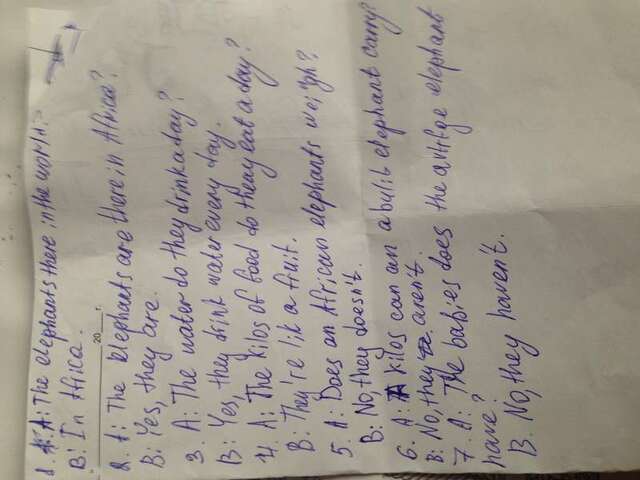 1. A: The elephants there in the world.
B: In Africa.
20 г.
2. A: The elephants are there in Africa?
B: Yes, they are.
3. A: The water do they drink a day?
B: Yes, they drink water every day.
4. A: The kilos of food do theay eat a day?
B: They're lik a fruit.
5. A: Does an African elephants weigh?
B: No, they doesn't.
6. A: A kilos can an elephant carry?
B: No, they aren't.
7. A: The babies does the elephant
have?
B. No, they haven't.